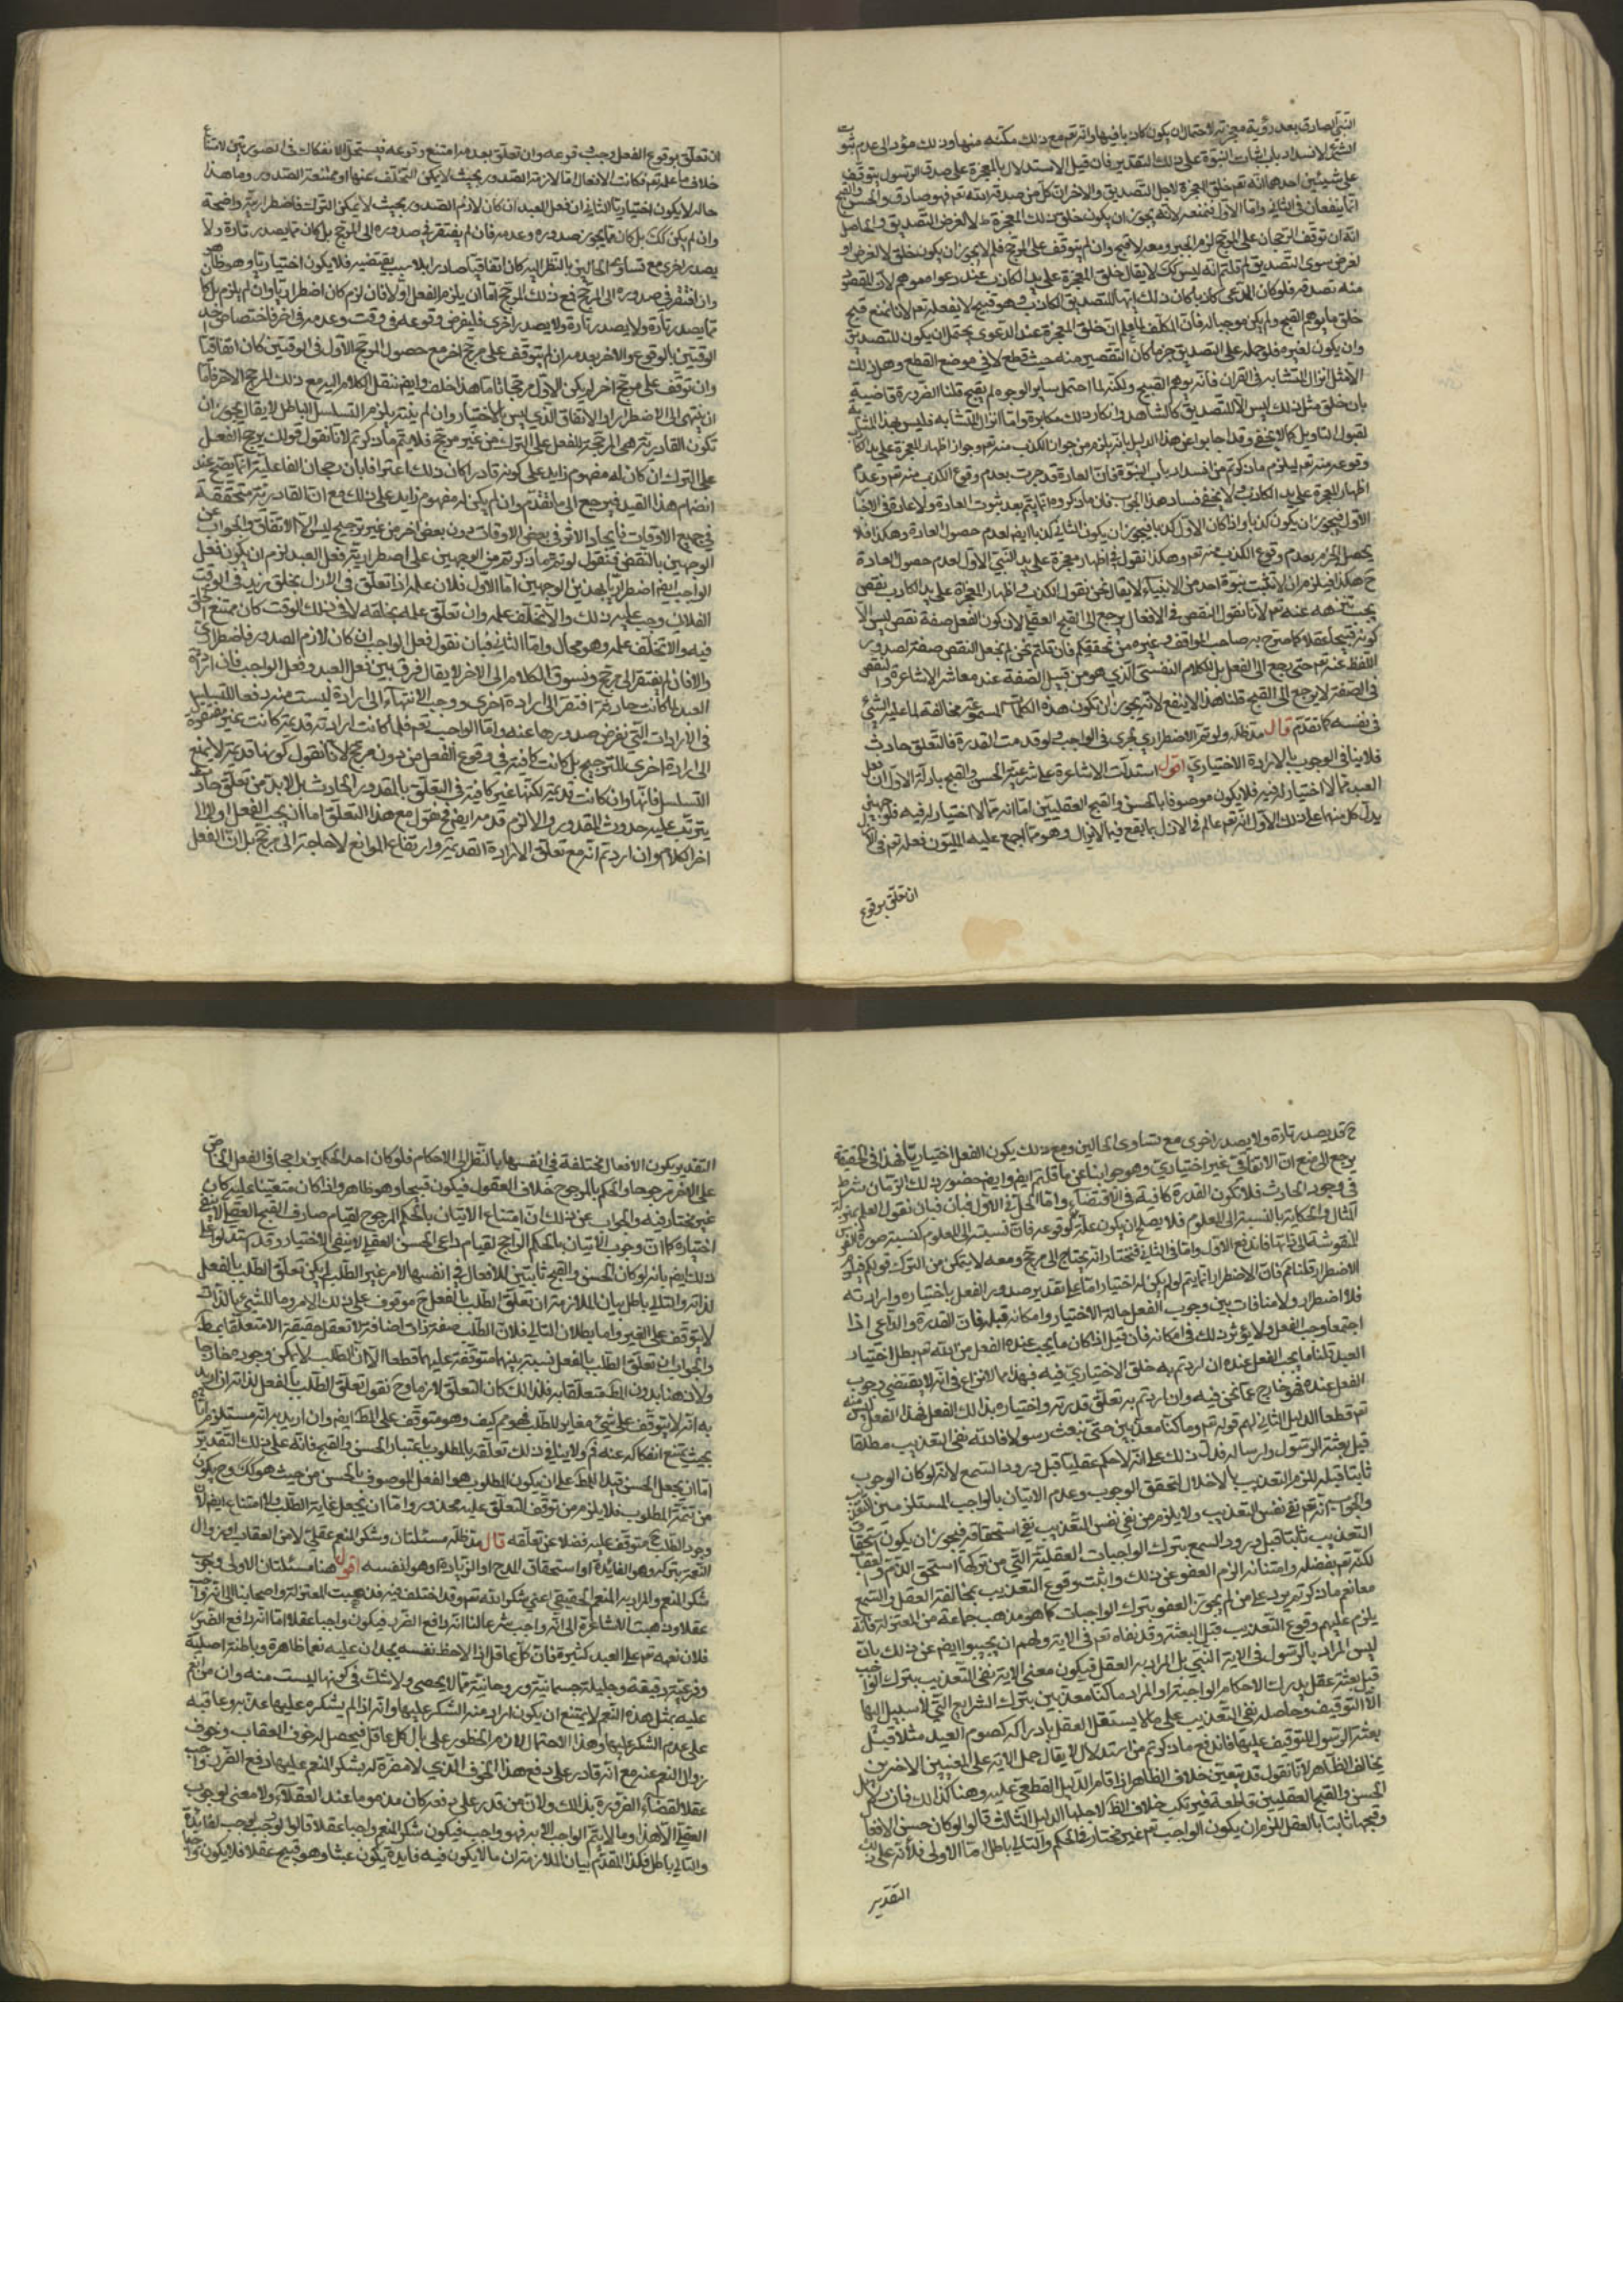 النبي الصادق بعد رؤية معجزته لاحتمال ان يكون كاذبا فيها وانه تع مع ذلك مكنه منها وذلك مؤد الى عدم ثبوت
الشئ لانسداد باب اثبات النبوة على ذلك التقدير فان قيل الاستدلال بالمعجزة على صدق الرسول يتوقف
على شيئين احدهما انه تع خلق المعجزة لاجل التصديق والاخر ان كل من صدقه الله تع فهو صادق والحسن والقبح
انما ينفعان في الثاني واما الاول فممنوع لانه يجوز ان يكون خلق تلك المعجزة لا لغرض التصديق والحاصل
انه ان توقف الرجحان على المرجح لزم الجبر ومعه لا قبح وان لم يتوقف على المرجح فلم لا يجوز ان يكون خلق لا لغرض او
لغرض سوى التصديق ثم قلتم انه ليس كك لا يقال خلق المعجزة على يد الكاذب عند دعواه موهم لان المقصود
منه تصدقه فلو كان المدعي كاذبا كان ذلك ايهاما لتصديق الكاذب وهو قبيح لا يفعله تع لانا نمنع قبح
خلق ما يوهم القبح ولم يكن موجبا له فان المكلف لما علم ان خلق المعجزة عند الدعوى يحتمل ان يكون للتصديق
وان يكون لغيره فلو حمله على التصديق جزما كان التقصير منه حيث قطع لا في موضع القطع وهل ذلك
الا مثل انزال المتشابه في القران فانه يوهم القبيح ولكنه لما احتمل ساير الوجوه لم يقبح قلنا الضرورة قاضية
بان خلق مثل ذلك ليس الا للتصديق كالشاهد وانكار ذلك مكابرة واما انزال المتشابه فليس بهذه المثابة
لقبول التاويل كما لا يخفى وقد اجابوا عن هذا الدليل بانه يلزم من جواز الكذب منه تع وجواز اظهار المعجزة على يد الكاذب
وقوعه منه تع ليلزم ما ذكرتم من انسداد باب النبوة فان العادة قد جرت بعدم وقوع الكذب منه تع وعدم
اظهار المعجزة على يد الكاذب ولا يخفى فساد هذا الجواب فان ما ذكروه انما يتم بعد ثبوت العادة ولا عادة في الاخبار
الاول فيجوز ان يكون كذبا واذا كان الاول كذبا فيجوز ان يكون الثاني كذبا ايضا لعدم حصول العادة وهكذا فلا
يحصل الجزم بعدم وقوع الكذب منه تع وهكذا نقول في اظهار معجزة على يد النبي الاول لعدم حصول العادة
ح هكذا فيلزم ان لا تثبت نبوة احد من الانبياء لا يقال نحن نقول الكذب واظهار المعجزة على يد الكاذب نقص
يجب تنزهه عنه تع لانا نقول النقص في الافعال يرجع الى القبح العقلي لان كون الفعل صفة نقص ليس الا
كونه قبيحا عقلا كما صرح به صاحب المواقف وغيره من محققيكم فان قلتم نحن لم نجعل النقص صفة لصدور
اللفظ عنه تع حتى يرجع الى الفعل بل للكلام النفسي الذي هو من قبيل الصفة عند معاشر الاشاعرة والنقص
في الصفة لا يرجع الى القبح قلنا هذا لا ينفع لانه يجوز ان تكون هذه الكلمات المسموعة مخالفة لما عليه الشئ
في نفسه كما تقدم قال مد ظله ولو تم الاضطراري لجرى في الواجب ولو قدمت القدرة فالتعلق حادث
فلا ينافي الوجوب بالارادة الاختياري اقول استدلت الاشاعرة على شرعية الحسن والقبح بادلة الاول ان فعل
العبد مما لا اختيار له فيه فلا يكون موصوفا بالحسن والقبح العقليين اما انه مما لا اختيار له فيه فلوجهين
يدل كل منهما على ذلك الاول انه تع عالم في الازل بما يقع فيما لا يزال وهو مما اجمع عليه المليون ففعله تع في
ان تعلق بوقوع
ان تعلق بوقوع الفعل وجب وقوعه وان تعلق بعدمه امتنع وقوعه فيستحيل الانفكاك في الصورتين لامتناع
خلاف ما علمه تع فكانت الافعال اما لازمة الصدور بحيث لا يمكن التخلف عنها او ممتنعة الصدور وما هذا
حاله لا يكون اختياريا الثاني ان فعل العبد ان كان لازم الصدور بحيث لا يمكن الترك فاضطراريته واضحة
وان لم يكن كك بل كان مما يجوز صدوره وعدمه فان لم يفتقر في صدوره الى المرجح بل كان مما يصدر تارة ولا
يصدر اخرى مع تساوي الحالين بالنظر اليه كان اتفاقيا صادرا بلا سبب يقتضيه فلا يكون اختياريا وهو ظاهر
وان افتقر في صدوره الى المرجح فمع ذلك المرجح اما ان يلزم الفعل او لا فان لزم كان اضطراريا وان لم يلزم بل كان
مما يصدر تارة ولا يصدر تارة ولا يصدر اخرى فليفرض وقوعه في وقت وعدمه في اخر فاختصاص احد
الوقتين بالوقوع والاخر بعدمه ان لم يتوقف على مرجح اخر مع حصول المرجح الاول في الوقتين كان اتفاقيا
وان توقف على مرجح اخر لم يكن الاول مرجحا تاما هذا خلف وايضا ننقل الكلام اليه مع ذلك المرجح الاخر فاما
ان ينتهي الى الاضطرار او الاتفاق الذي ليس بالاختيار وان لم ينته يلزم التسلسل الباطل لا يقال يجوز ان
تكون القادرية هي المرجحة للفعل على الترك من غير مرجح فلا يتم ما ذكرتم لانا نقول قولك يرجح الفعل
على الترك ان كان له مفهوم زايد على كونه قادرا كان ذلك اعترافا بان رجحان الفاعلية انما يصح عند
انضمام هذا القيد فيرجع الى ما تقدم وان لم يكن له مفهوم زايد على ذلك مع ان القادرية متحققة
في جميع الاوقات فايجاد الاثر في بعض الاوقات دون بعض اخر من غير ترجيح ليس الا الاتفاق والجواب عن
الوجهين بالنقض فنقول لو تم ما ذكرتم من الوجهين على اضطرارية فعل العبد لزم ان يكون فعل
الواجب ايضا اضطراريا بهذين الوجهين اما الاول فلان علمه اذا تعلق في الازل بخلق زيد في الوقت
الفلاني وجب عليه ذلك والا تخلف علمه وان تعلق علمه بخلقه لا في ذلك الوقت كان ممتنع الخلق
فيه والا تخلف علمه وهو محال واما الثاني فبان نقول فعل الواجب ان كان لازم الصدور فاضطراري
والا فان لم يفتقر الى مرجح ونسوق الكلام الى الاخر لا يقال فرق بين فعل العبد وفعل الواجب فان ارادة
العبد لما كانت حادثة افتقر الى ارادة اخرى ووجب الانتهاء الى ارادة ليست منه دفعا للتسلسل
في الارادات التي نفرض صدورها عنه واما الواجب تع فلما كانت ارادته قديمة كانت غير مفتقرة
الى ارادة اخرى للترجيح بل كانت كافية في وقوع الفعل من دون مرجح لانا نقول كونها قديمة لا يمنع
التسلسل فانها وان كانت قديمة لكنها غير كافية في التعلق بالمقدور الحادث بل لابد من تعلق حادث
يترتب عليه حدوث المقدور والا لزم قدمه ايضا فح نقول مع هذا التعلق اما ان يجب الفعل او لا الى
اخر الكلام وان اردتم انه مع تعلق الارادة القديمة وارتفاع الموانع لا حاجة الى مرجح بل ان الفعل
ح قد يصدر تارة ولا يصدر اخرى مع تساوي الحالين ومع ذلك يكون الفعل اختياريا فهذا في الحقيقة
يرجع الى منع ان الاتفاقي غير اختياري وهو جوابنا عن ما قلتم ايضا وايضا حضور ذلك الزمان شرط
في وجود الحادث فلا تكون القدرة كافية في الاقتضاء واما الحل في الاول فبان نقول العلم بمنزلة
المثال والحكاية بالنسبة الى المعلوم فلا يصلح ان يكون علة لوقوعه فان نسبته الى المعلوم كنسبة صورة الفرس
المنقوشة الى ذاتها فاندفع الاول واما في الثاني فنختار انه يحتاج الى مرجح ومعه لا يتمكن من الترك قولكم فيلزم
الاضطرار قلنا نعم فان الاضطرار انما يتم لو لم يكن له اختيار اما على تقدير صدور الفعل باختياره وارادته
فلا اضطرار ولا منافات بين وجوب الفعل حالة الاختيار وامكانه قبله فان القدرة والداعي اذا
اجتمعا وجب الفعل ولا يؤثر ذلك في امكانه فان قيل اذا كان ما يجب عنده الفعل من الله تع بطل اختيار
العبد قلنا ما يجب الفعل عنده ان اردتم به خلق الاختياري فيه فهذا مما لا نزاع في انه لا يقتضي وجوب
الفعل عنده فهو خارج عما نحن فيه وان اردتم به تعلق قدرته واختياره بذلك الفعل فهذا الفعل ليس منه
تع قطعا الدليل الثاني لهم قوله تع وما كنا معذبين حتى نبعث رسولا فانه نفى التعذيب مطلقا
قبل بعثة الرسول وارساله فدل ذلك على انه لا حكم عقليا قبل ورود السمع لانه لو كان الوجوب
ثابتا قبله للزم التعذيب بالاخلال لتحقق الوجوب وعدم الاتيان بالواجب المستلزمين للتعذيب
والجواب انه تع نفى نفس التعذيب ولا يلزم من نفي نفس التعذيب نفي استحقاقه فيجوز ان يكون استحقاق
التعذيب ثابتا قبل ورود السمع بترك الواجبات العقلية التي من تركها استحق الذم والعقاب
لكنه تع بفضله وامتنانه الزم العفو عن ذلك واثبت وقوع التعذيب بمخالفة العقل والسمع
معا نعم ما ذكرتم يرد على من لم يجوز العفو بترك الواجبات كما هو مذهب جماعة من المعتزلة فانه
يلزم عليهم وقوع التعذيب قبل البعثة وقد نفاه تع في الاية ولهم ان يجيبوا ايضا عن ذلك بان
ليس المراد بالرسول في الاية النبي بل المراد به العقل فيكون معنى الاية نفي التعذيب بترك الواجب
قبل بعثة عقل يدرك الاحكام الواجبة او المراد ما كنا معذبين بترك الشرايع التي لا سبيل اليها
الا التوقيف وحاصله نفي التعذيب على ما لا يستقل العقل بادراكه كصوم العيد مثلا قبل
بعثة الرسول للتوقيف عليها فاندفع ما ذكرتم من الاستدلال لا يقال حمل الاية على المعنيين الاخيرين
يخالف الظاهر لانا نقول قد يتعين خلاف الظاهر اذا قام الدليل القطعي عليه وهنا كذلك فان دلايل
الحسن والقبح العقليين قاطعة فيرتكب خلاف الظ لاجلها الدليل الثالث قالوا لو كان حسن الافعال
وقبحها ثابتا بالعقل للزم ان يكون الواجب تع غير مختار في الحكم والتالي باطل اما الاولى فلانه على ذلك
التقدير
التقدير يكون الافعال مختلفة في انفسها بالنظر الى الاحكام فلو كان احد الحكمين راجحا في الفعل الخاص
على الاخر مرجوحا والحكم بالمرجوح خلاف المعقول فيكون قبيحا وهو ظاهر واذا كان متعينا عليه كان
غير مختار فيه والجواب عن ذلك ان امتناع الاتيان بالحكم المرجوح لقيام صارف القبح العقلي لا ينفي
اختياره كما ان وجوب الاتيان بالحكم الراجح لقيام داعي الحسن العقلي لا ينفي الاختيار وقد استدلوا على
ذلك ايضا بانه لو كان الحسن والقبح ثابتين للافعال في انفسها لامر غير الطلب لم يكن تعلق الطلب بالفعل
لذاته والتالي باطل بيان الملازمة ان تعلق الطلب بالفعل ح موقوف على ذلك الامر وما للشئ بالذات
لا يتوقف على الغير واما بطلان التالي فلان الطلب صفة ذات اضافة لا تعقل حقيقته الا متعلقا بمط
والجواب ان تعلق الطلب بالفعل نسبة بينهما متوقفة عليهما قطعا الا ان الطلب لا يمكن وجوده خارجا
ولا ذهنا بدون المط متعلقا به فلذلك كان التعلق لازما وح نقول تعلق الطلب بالفعل لذاته ان اريد
به انه لا يتوقف على شئ مغاير للطلب فهو مم كيف وهو متوقف على المط ايضا وان اريد به انه مستلزم اياه
بحيث يمتنع انفكاكه عنه فم ولا ينافي ذلك تعلقه بالمطلوب باعتبار الحسن والقبح فانه على ذلك التقدير
اما ان يجعل الحسن قيدا للمط على ان يكون المطلوب هو الفعل الموصوف بالحسن من حيث هو كك وح يكون
من تتمة المطلوب فلا يلزم من توقف التعلق عليه محذور واما ان يجعل غاية الطلب ولا امتناع ايضا لان
وجود الطلب ح متوقف عليه فضلا عن تعلقه قال مد ظله مسئلتان وشكر المنعم عقلي لامن العقاب او زوال
النعم بتركه وهو الفائدة او استحقاق المدح او الزيادة او هو لنفسه اقول هنا مسئلتان الاولى وجوب
شكر المنعم والمراد به المنعم الحقيقي اعني شكر الله تع وقد اختلف فيه فذهبت المعتزلة واصحابنا الى انه واجب
عقلا وذهبت الاشاعرة الى انه واجب شرعا لنا انه دافع الضرر فيكون واجبا عقلا اما انه دافع الضرر
فلان نعمه تع على العبد كثيرة فان كل عاقل اذا لاحظ نفسه يجد ان عليه نعما ظاهرة وباطنة اصلية
وفرعية دقيقة وجليلة جسمانية وروحانية مما لا يحصى ولا شك في كونها ليست منه وان من انعم
عليه بمثل هذه النعم لا يمتنع ان يكون اراد منه الشكر عليها وانه اذا لم يشكره عليها عذبه وعاقبه
على عدم الشكر عليها وهذا الاحتمال لازم الخطور على بال كل عاقل فيحصل له خوف العقاب وخوف
زوال النعم عنه مع انه قادر على دفع هذا الخوف الذي لا مضرة له بشكر المنعم عليها ودفع الضرر واجب
عقلا لقضاء الضرورة بذلك ولان من قدر على دفعه كان مذموما عند العقلاء ولا معنى لوجوب
العقلي الا هذا وما لا يتم الواجب الا به فهو واجب فيكون شكر المنعم واجبا عقلا قالوا لو وجب لوجب لفايدة
والتالي باطل فكذا المقدم بيان الملازمة ان ما لا يكون فيه فايدة يكون عبثا وهو قبيح عقلا فلا يكون واجبا